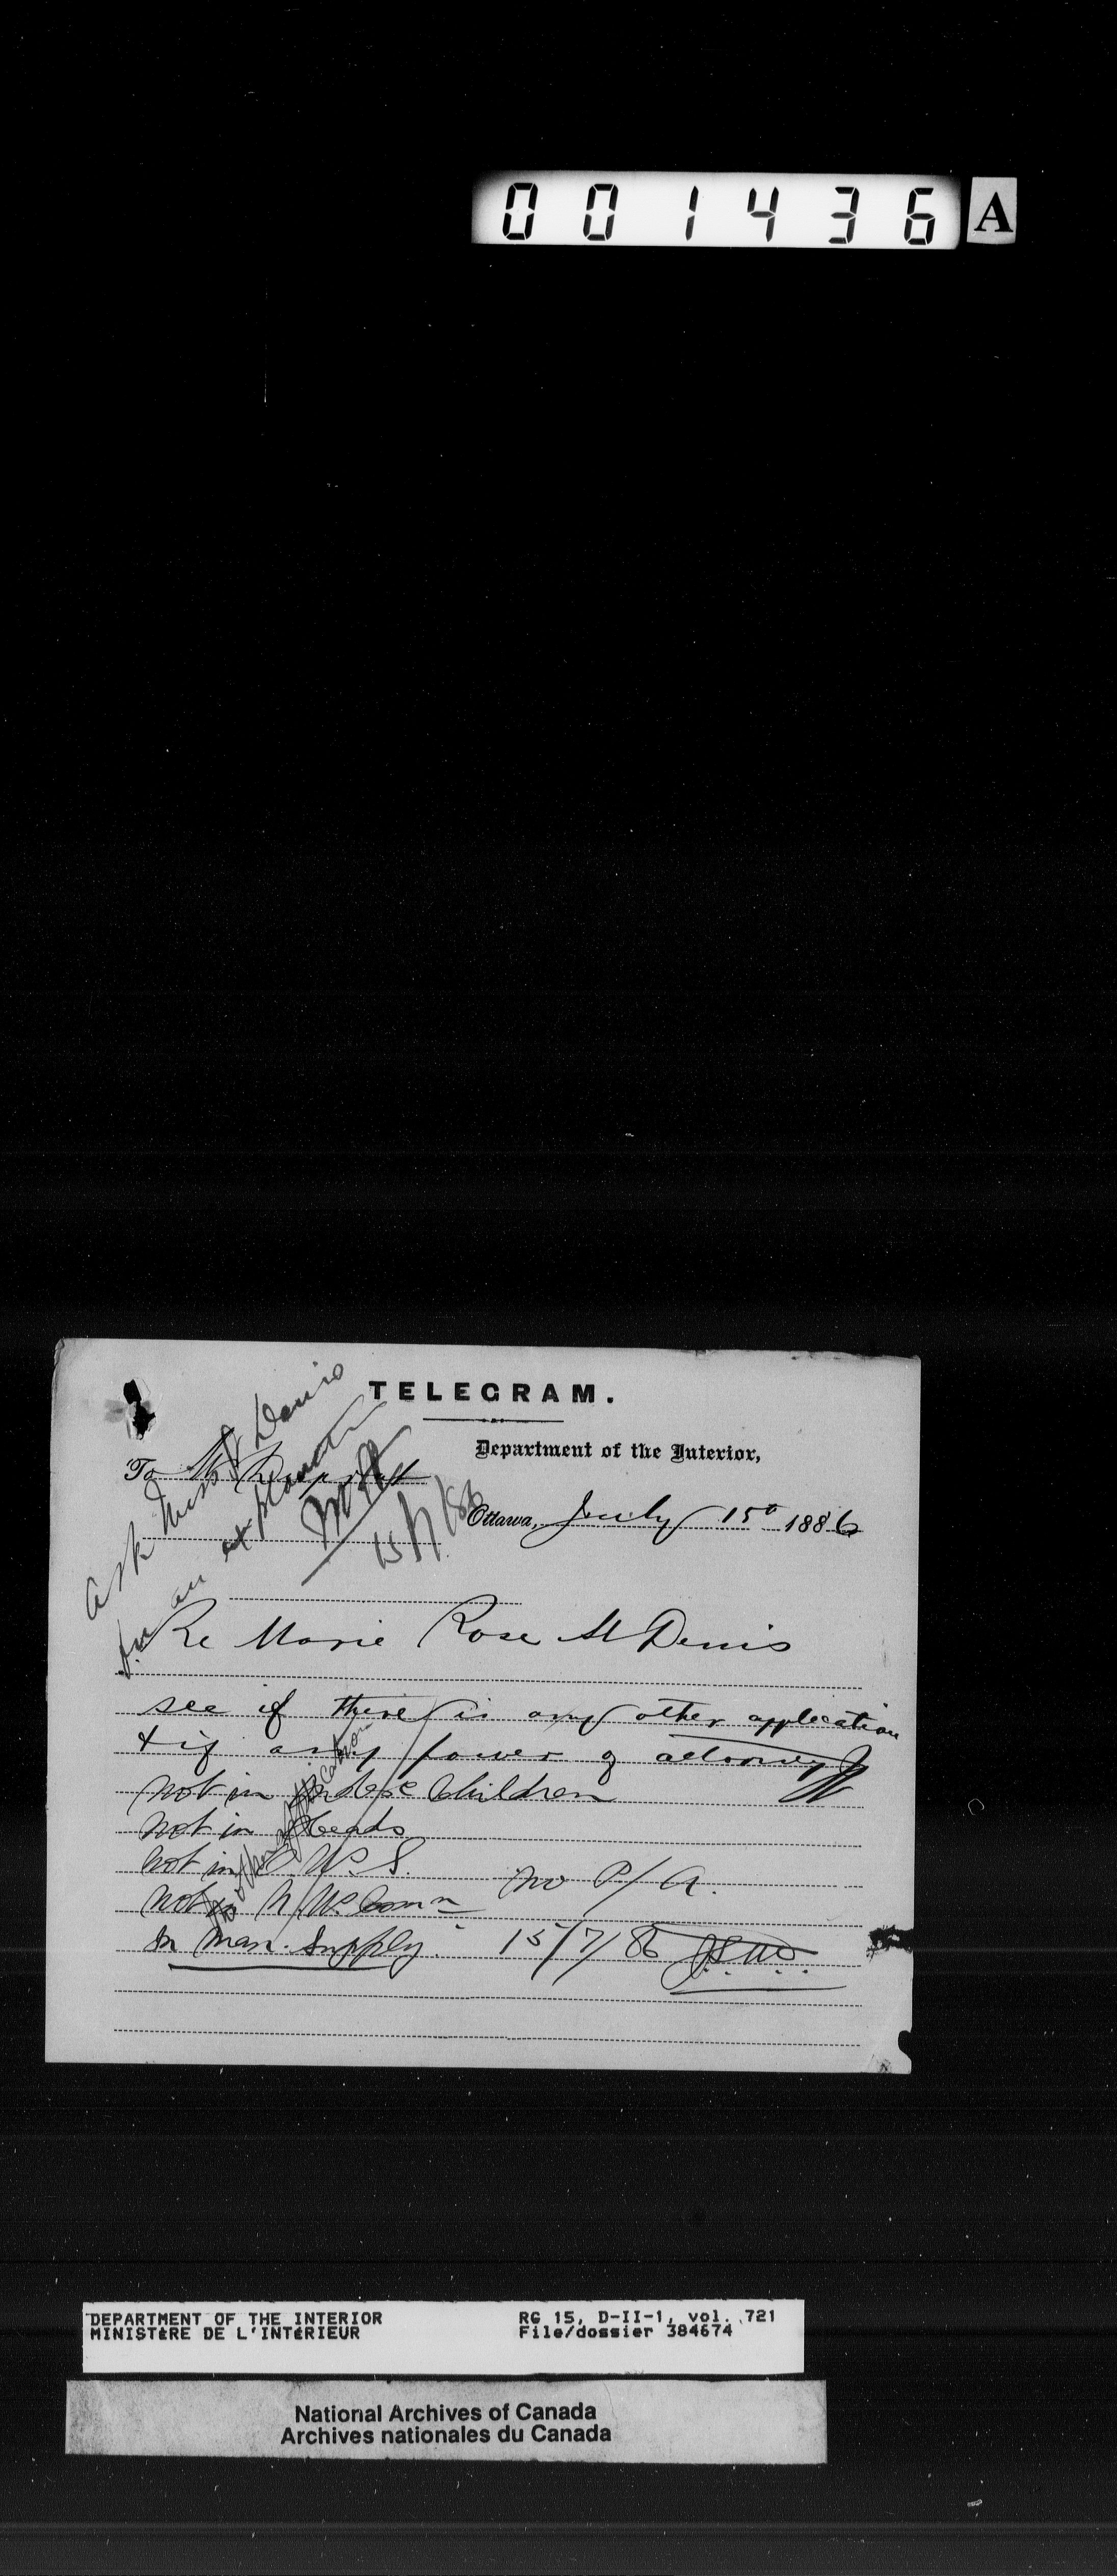 001436 A
TELEGRAM.
Department of the Interior,
To Mr
Ottawa, July 15th 1886
Ask Miss Denis
for an explanation
15/7/86
Re Marie Rose St Denis
see if there is any other application
& if any power of attorney
not in Children
Not in Heads
not in N. W. S.
Not in N. W. Comn
no P/A.
no other application
In Man. Supply. 15/7/86
DEPARTMENT OF THE INTERIOR
MINISTÈRE DE L'INTÉRIEUR
RG 15, D-II-1, vol. 721
File/dossier 384674
National Archives of Canada
Archives nationales du Canada